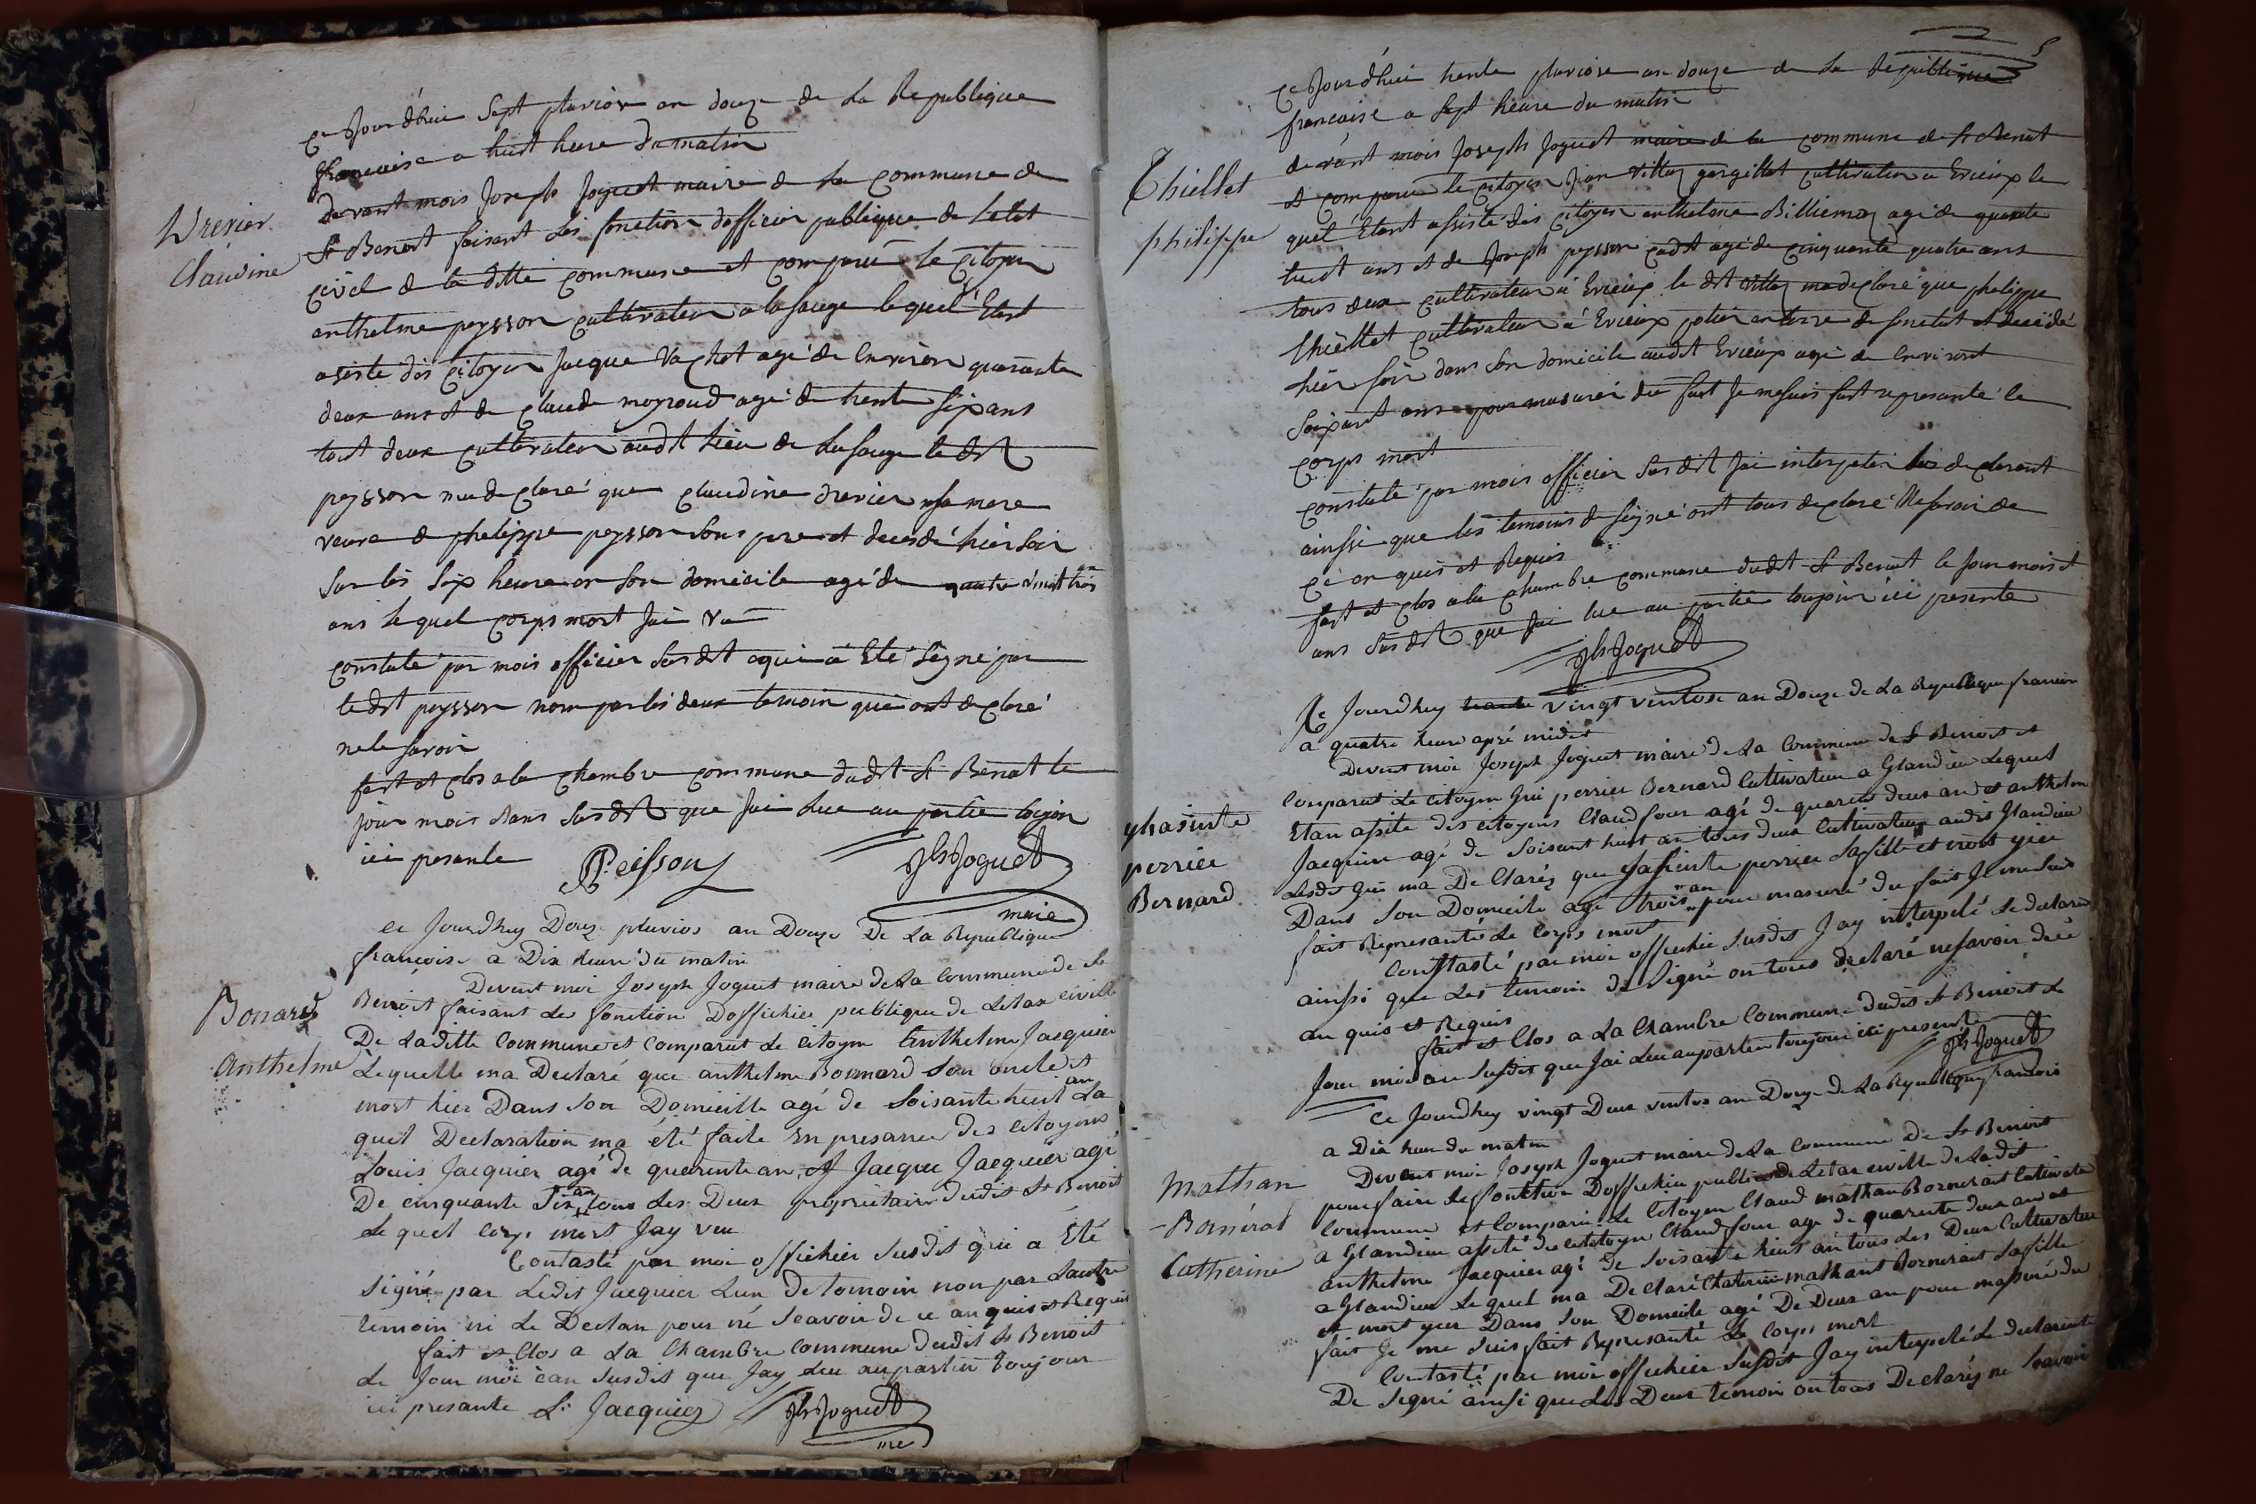 Drevier
Claudine
ce Jourdhui Sept pluviose an douze de la Republique
francaise a huit heure du matin
devant mois Joseph Joguet maire de la commune de
St Benoit faisant les fonction dofficier publique de letat
civil de la ditte commune et comparu le citoyen
anthelme peysson cultivateur a la sauge lequel Etant
asisté dés citoyen Jacque Vachot agé de Environ quarante
deux ans et de claude moyroud agé de trente six ans
tout deux cultivateur audt lieu de la sauge le dt
peysson ma declaré que claudine drevier sa mere
veuve de phelippe peysson sons pere et decedé hier soir
sur lés six heure en son domicile agé de quatre vingt trois
ans le quel corps mort Jai vu
constaté par mois officier susdt a qui a Eté Signé par
le dt peysson nom par lés deux temoin qui ont declaré
ne le savoir
fait et clos a la chambre commune dudt St Benoit le
jour mois et ans susdt que Jai lue au partie toujour
ici presente
Peisson
Jh Joguet
maire
Bonard
Anthelme
ce Jourdhuy Douze pluvios an Douze De La Republique
françoise a Dix heure du matin
Devent moi Joseph Joguet maire de La Commune de St
Benoit faisant les fonction Doffichier publique de Letax civille
De Laditte Commune et comparut Le citoyen Anthelme Jacquier
Lequelle ma Declaré que anthelme Bonnard son oncle est
mort hier Dans son Domicille agé de soisante huit an La
quel Declaration ma été faite En presance Des citoyens
Louis Jacquier agé de quarente an et Jacque Jacquier agé
De cinquante Six an tous Les Deux propriétaire dudit St Benoit
Le quel corps mort Jay veu
Contasté par moi offichier susdit qui a Eté
signé par Ledit Jacquier Lun De temoin non par Lautre
temoin ni Le Declan pour né scavoir de ce an quis et Requis
fait et Clos a La Chambre Commune Dudit St Benoit
Le Jour moi è an susdit que Jay Leu au partier toujour
ici presante
L. Jacquier
Jh Joguet
me
5
Thiellet
philippe
ce Jourd'hui trente pluviose an douze de la Republique
francaise a sept heure du matin
devant mois Joseph Joguet maire de la commune de St Benoit
et comparu le citoyen Jean Villoz gargillot cultivateur a Evieux le
quel Etant assisté dés citoyen anthelme Billiemoz agé de quarente
huit ans et de Joseph peysson cadet agé de cinquante quatre ans
tous deux cultivateur a Evieux le dt Villoz ma declaré que phelippe
thiellet cultivateur a Evieux potier en terre de son etat et decédé
hier soir dans son domicile audt Evieux agé de Environt
soixant ans pour masurer du fait Je me suis fait representé le
corps mort
constaté par mois officier susdit Jai interpeler lés declarant
ainssi que lés temoins de signé ont tous declaré Ne savoir de
ce en quis et Requis
fait et clos a la chambre commune dudt St Benoit le jour mois et
ans susdt que Jai lue au partie toujour ici presente
Jh Joguet
ghasinte
perrier
Bernard
Ce Jourdhuy trente vingt ventose an Douze de La Republique francoise
a quatre heure apré midit
Devent moi Joseph Joguet maire de La Commune de St Benoit et
Comparut Le citoyen Gui perrier Bernard Cultivateur a Glandieu Lequel
Etan assite des citoyens Claud four agé de quarente deux an et anthelm
Jacquier agé de soisant huit an tous deux Cultivateur audit Glandieu
Ledit Gui ma De Clarés que Jasinte perrier Sa fille et mort yier
Dans son Domicile agé trois an pour masuré du fait Je me suis
fait Representé Le corps mort
Constasté par moi offichier susdit Jay interpelé Le declaran
ainsi que Les temoin de Signé on tous declaré ne savoir de ce
an quis et Requis
fait et Clos a La Chambre Commune dudit St Benoit Le
Jour moi è an susdit que Jai Leu au partier toujour ici presente
Jh Joguet
Mathan
Bornérat
Catherine
Ce Jourdhuy vingt Deux ventos an Douze de La Republique francois
a Dix heure du matin
Devent moi Joseph Joguet maire de La Commune De St Benoit
pour faire Les fonction Dofficher public de Letax civille de Ladit
Commune et Comparu Le Citoyen Claud mathan Bornerait Cultivateur
a Glandieu assité des citoyen Claud four agé de quarente deux an et
anthelme Jacquier agé de soisante huit an tous des Deux Cultivateur
a Glandieu Le quel ma De Claré Chaterine mathant Bornerait Sa fille
et mort yier Dans son Domicile agé De Deux an pour massuré du
fait Je me suis fait Representé Le Corps mort
Contasté par moi offichier susdit Jay interpelé Le declarent
De signé ainsi que Les Deux temoin on tous Declarés ne scavoir